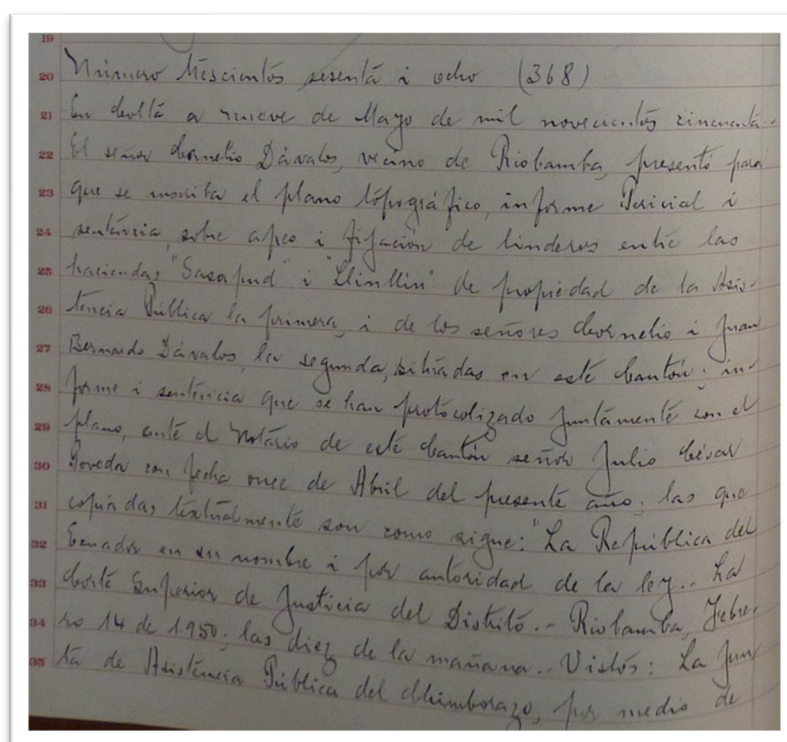 19
20 Número trescientos sesenta i ocho (368)
21 En Colta a nueve de Mayo de mil novecientos cincuenta.-
22 El señor Cornelio Dávalos, vecino de Riobamba, presentó para
23 que se inscriba el plano topográfico, informe Pericial i
24 sentencia, sobre apeo i fijación de linderos entre las
25 haciendas "Sasapud" i "Llinllin" de propiedad de la Asis-
26 tencia Pública la primera, i de los señores Cornelio i Juan
27 Bernardo Dávalos, la segunda, situadas en este Cantón; in-
28 forme i sentencia que se han protocolizado juntamente con el
29 plano, ante el Notario de este Cantón señor Julio César
30 Poveda con fecha once de Abril del presente año, las que
31 copiadas textualmente son como sigue: "La República del
32 Ecuador en su nombre i por autoridad de la ley.- La
33 Corte Superior de Justicia del Distrito.- Riobamba, Febre-
34 ro 14 de 1950; las diez de la mañana.- Vistos: La Jun
35 ta de Asistencia Pública del Chimborazo, por medio de